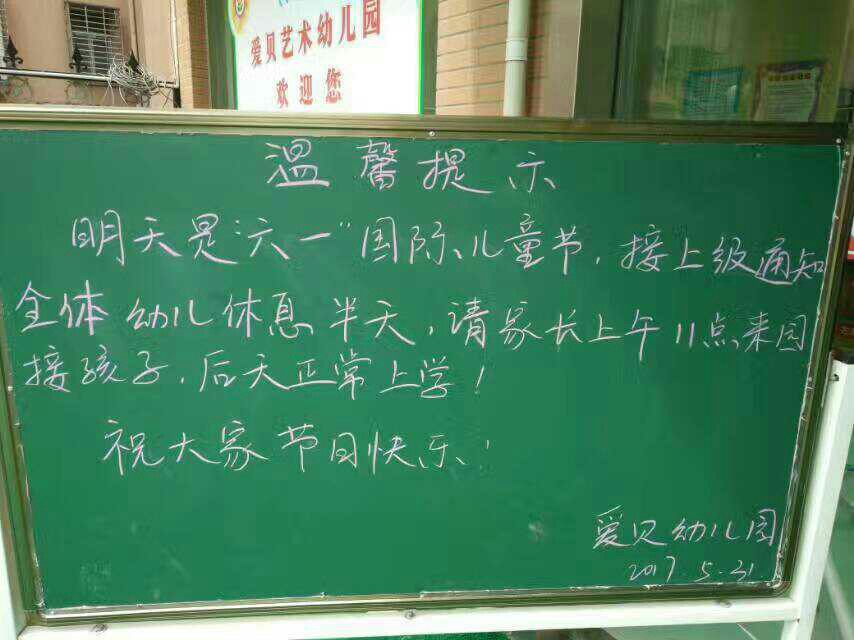 爱贝艺术幼儿园
欢迎您
温馨提示
明天是“六一”国际儿童节，接上级通知
全体幼儿休息半天，请家长上午11点来园
接孩子，后天正常上学！
祝大家节日快乐！
爱贝幼儿园
2017.5.31